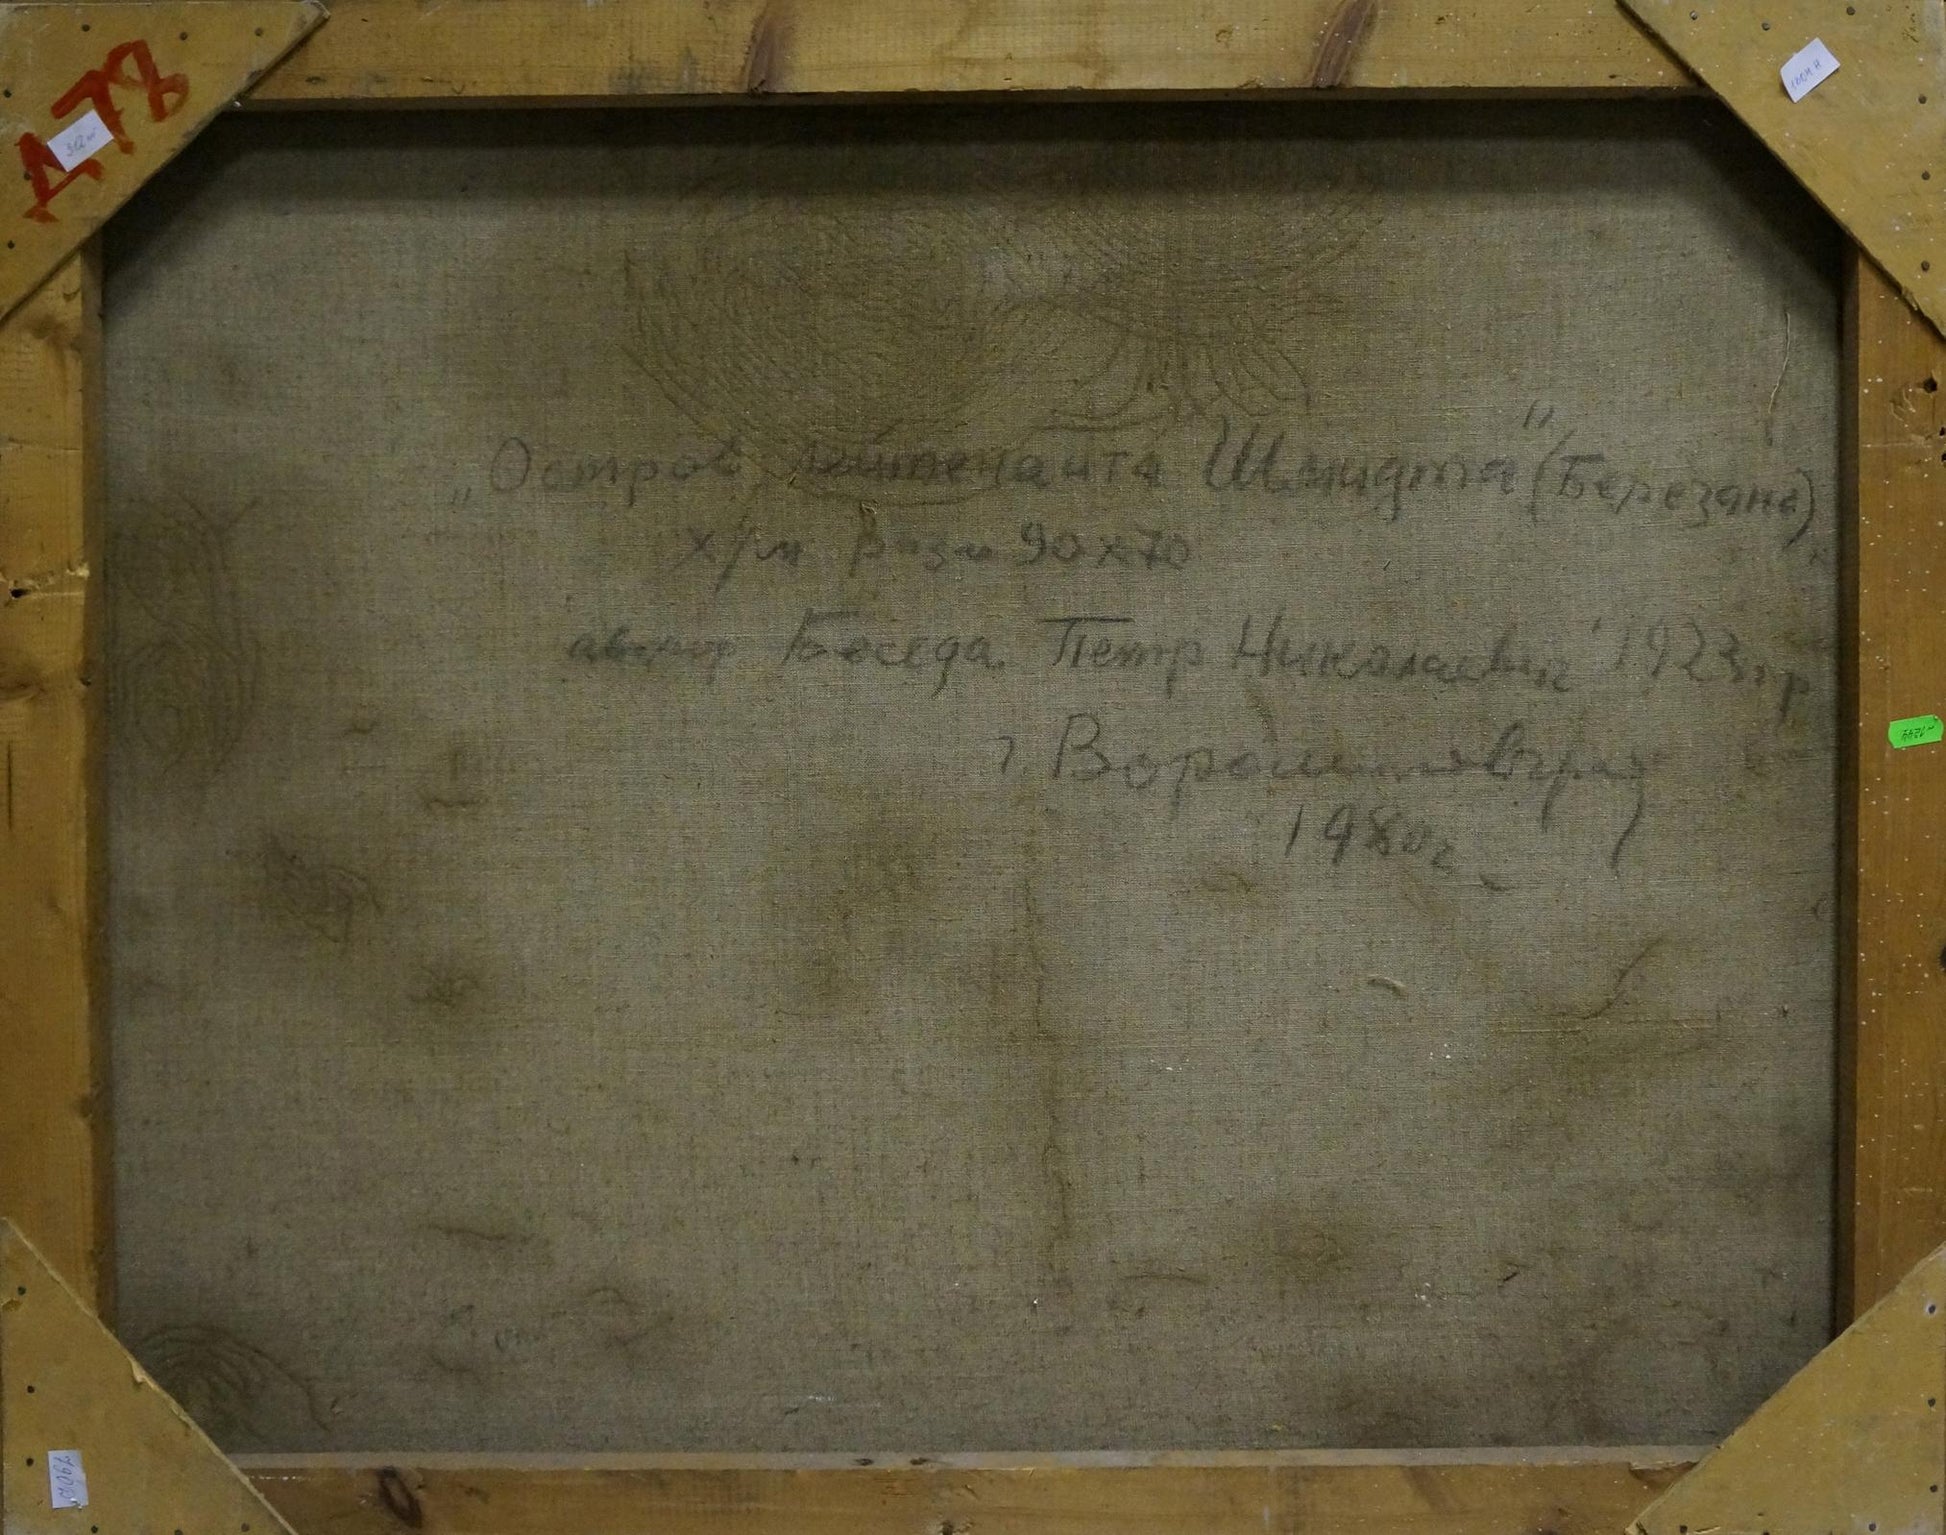 А78
„Остров лейтенанта Шмидта" (Березань)
х/м разм 90х70
автор Беседа Петр Николаевич 1923 гр
г. Ворошиловград
1980г